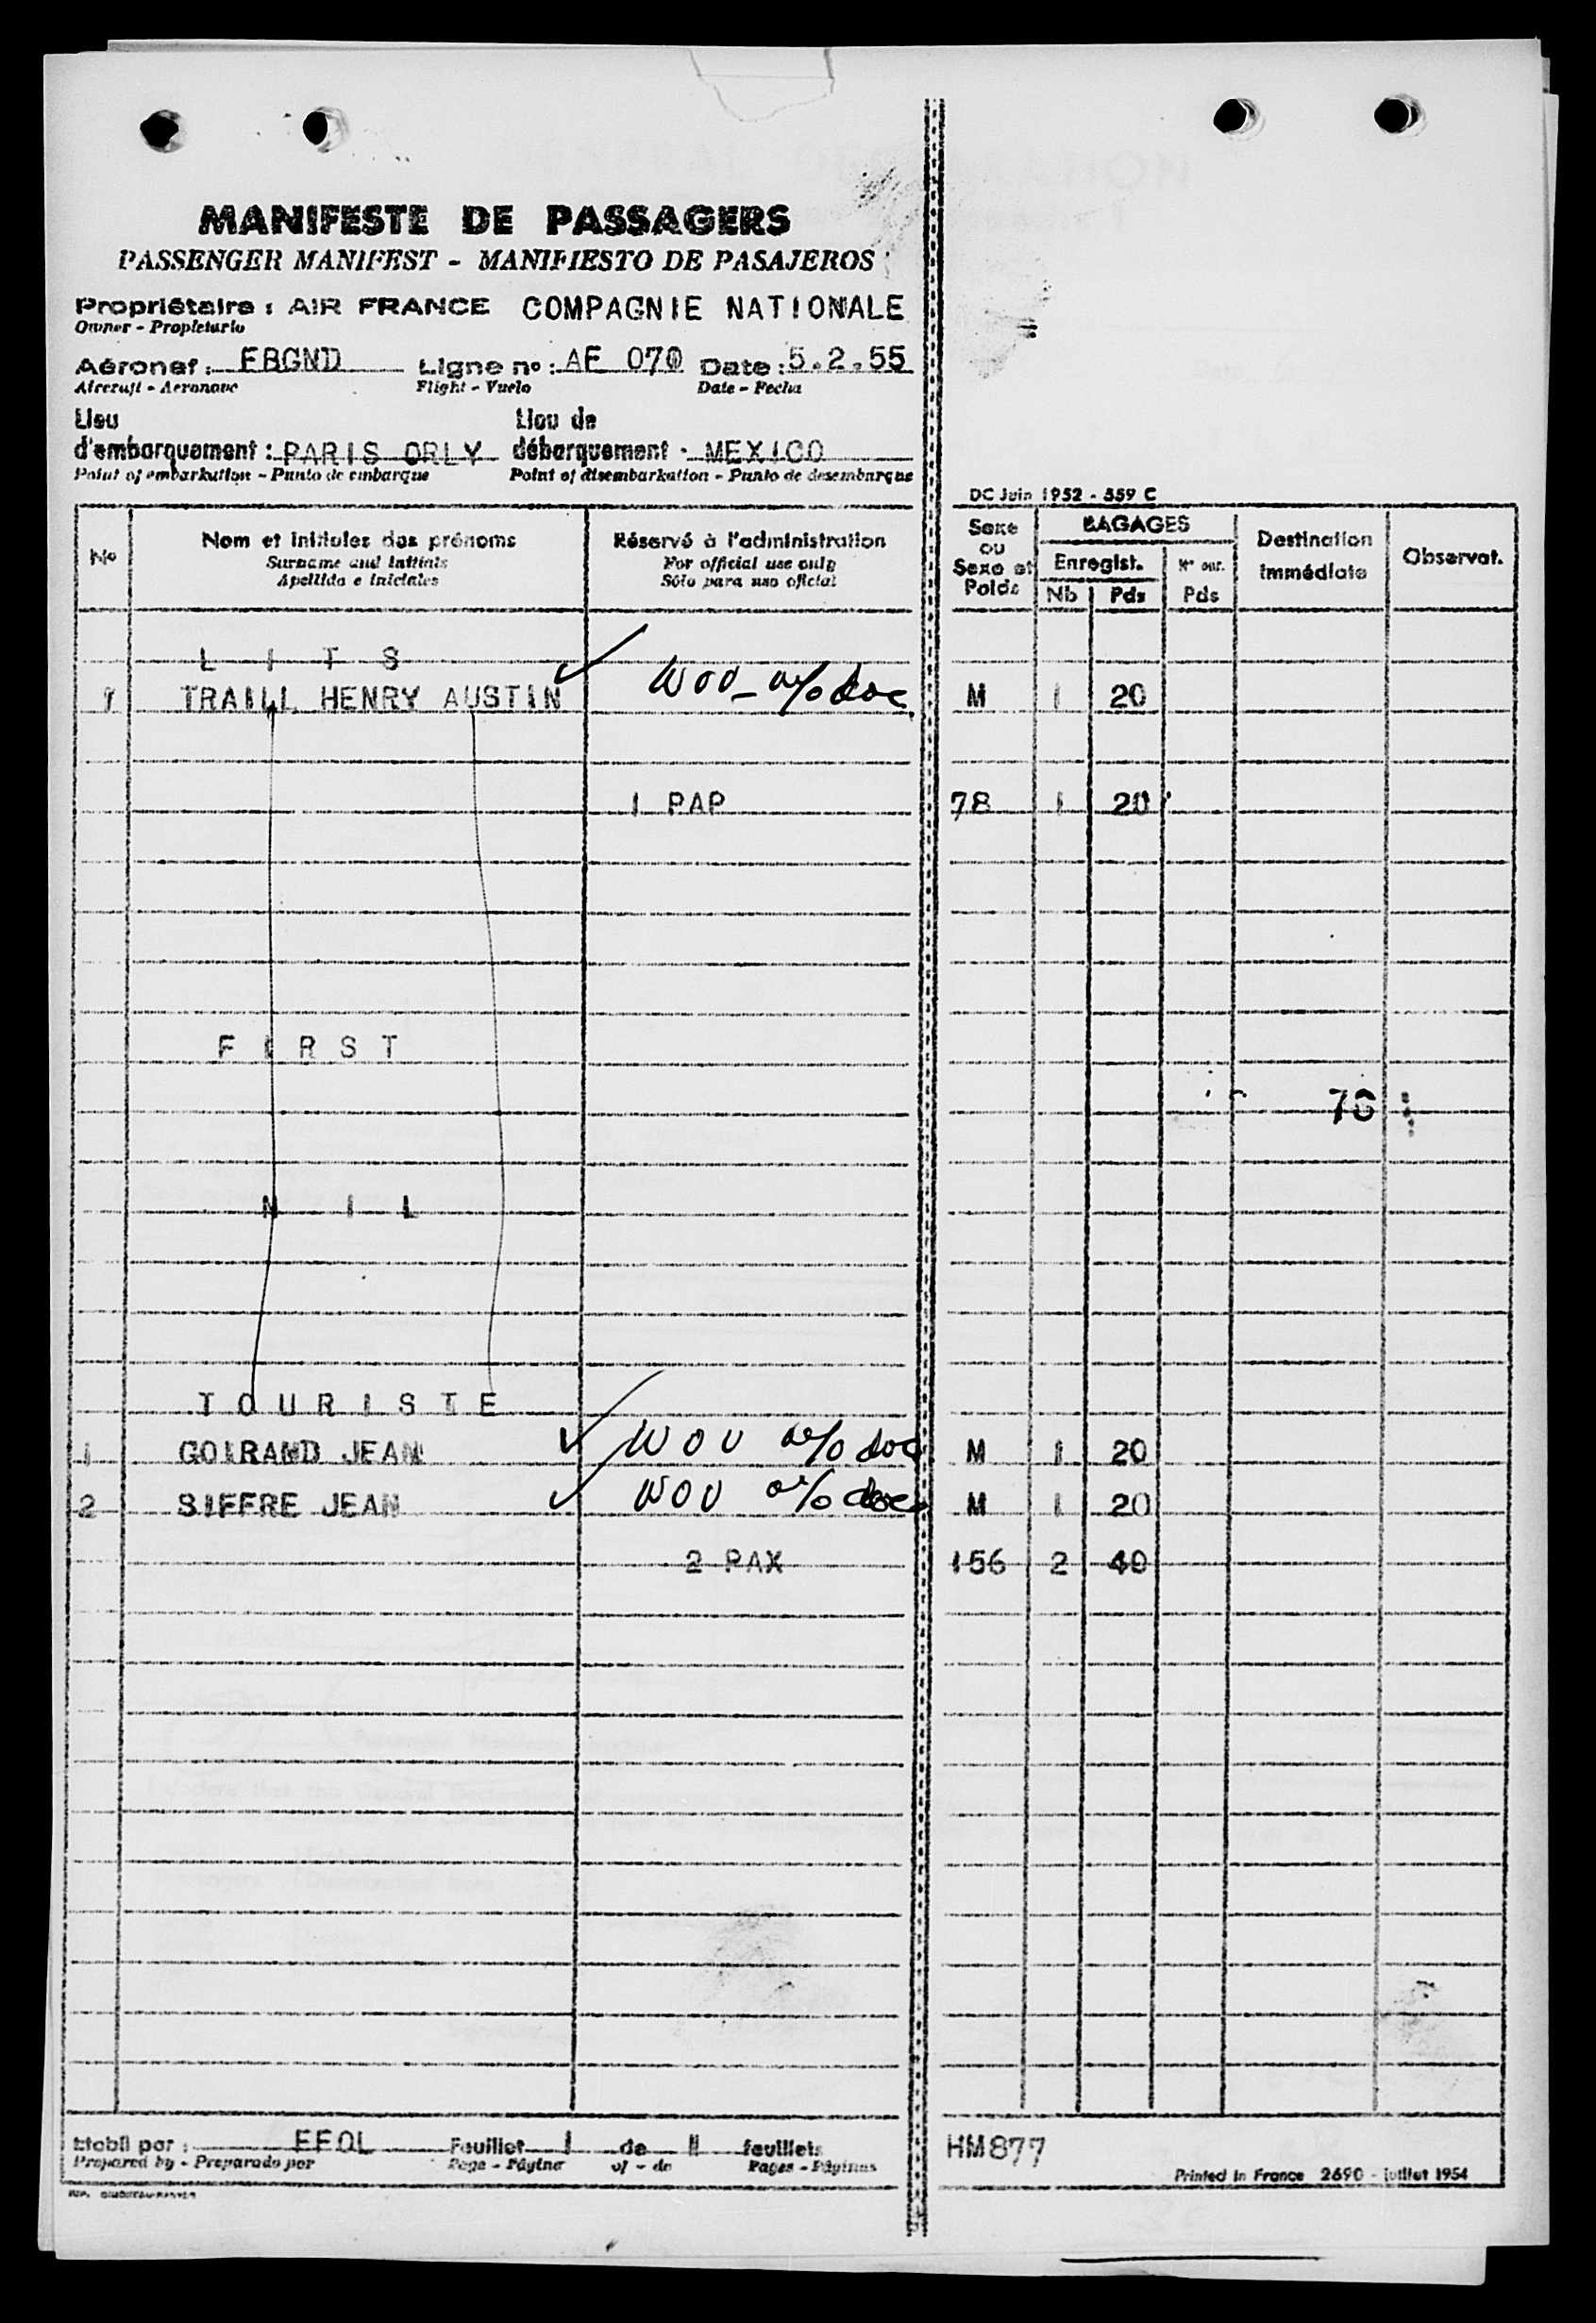 MANIFESTE DE PASSAGERS
PASSENGER MANIFEST - MANIFIESTO DE PASAJEROS
Propriétaire : AIR FRANCE COMPAGNIE NATIONALE
Owner - Propietario
Aéronef : FBGND Ligne no : AF 070 Date : 5.2.55
Aircraft - Aeronave Flight - Vuelo Date - Fecha
Lieu Lieu de
d'embarquement : PARIS ORLY débarquement : MEXICO
Point of embarkation - Punto de embarque Point of disembarkation - Punto de desembarque
DC Juin 1952 - 559 C
No Nom et initiales des prénoms Réservé à l'administration Sexe ou Sexe et Poids BAGAGES Destination immédiate Observat.
Surname and initials For official use only Enregist. Nº enr.
Apellido e iniciales Sólo para uso oficial Nb Pds Pds
L I T S
1 TRAILL HENRY AUSTIN WOV - w/o doc M 1 20
1 PAP 78 1 20
F I R S T
78
N I L
T O U R I S T E
1 GOIRAND JEAN WOV w/o doc M 1 20
2 SIFFRE JEAN WOV w/o doc M 1 20
2 PAX 156 2 40
Etabli par : EFOL Feuillet 1 de 1 feuillets
Prepared by - Preparado por Page - Página of - de Pages - Páginas
HM877
Printed in France 2690 - juillet 1954